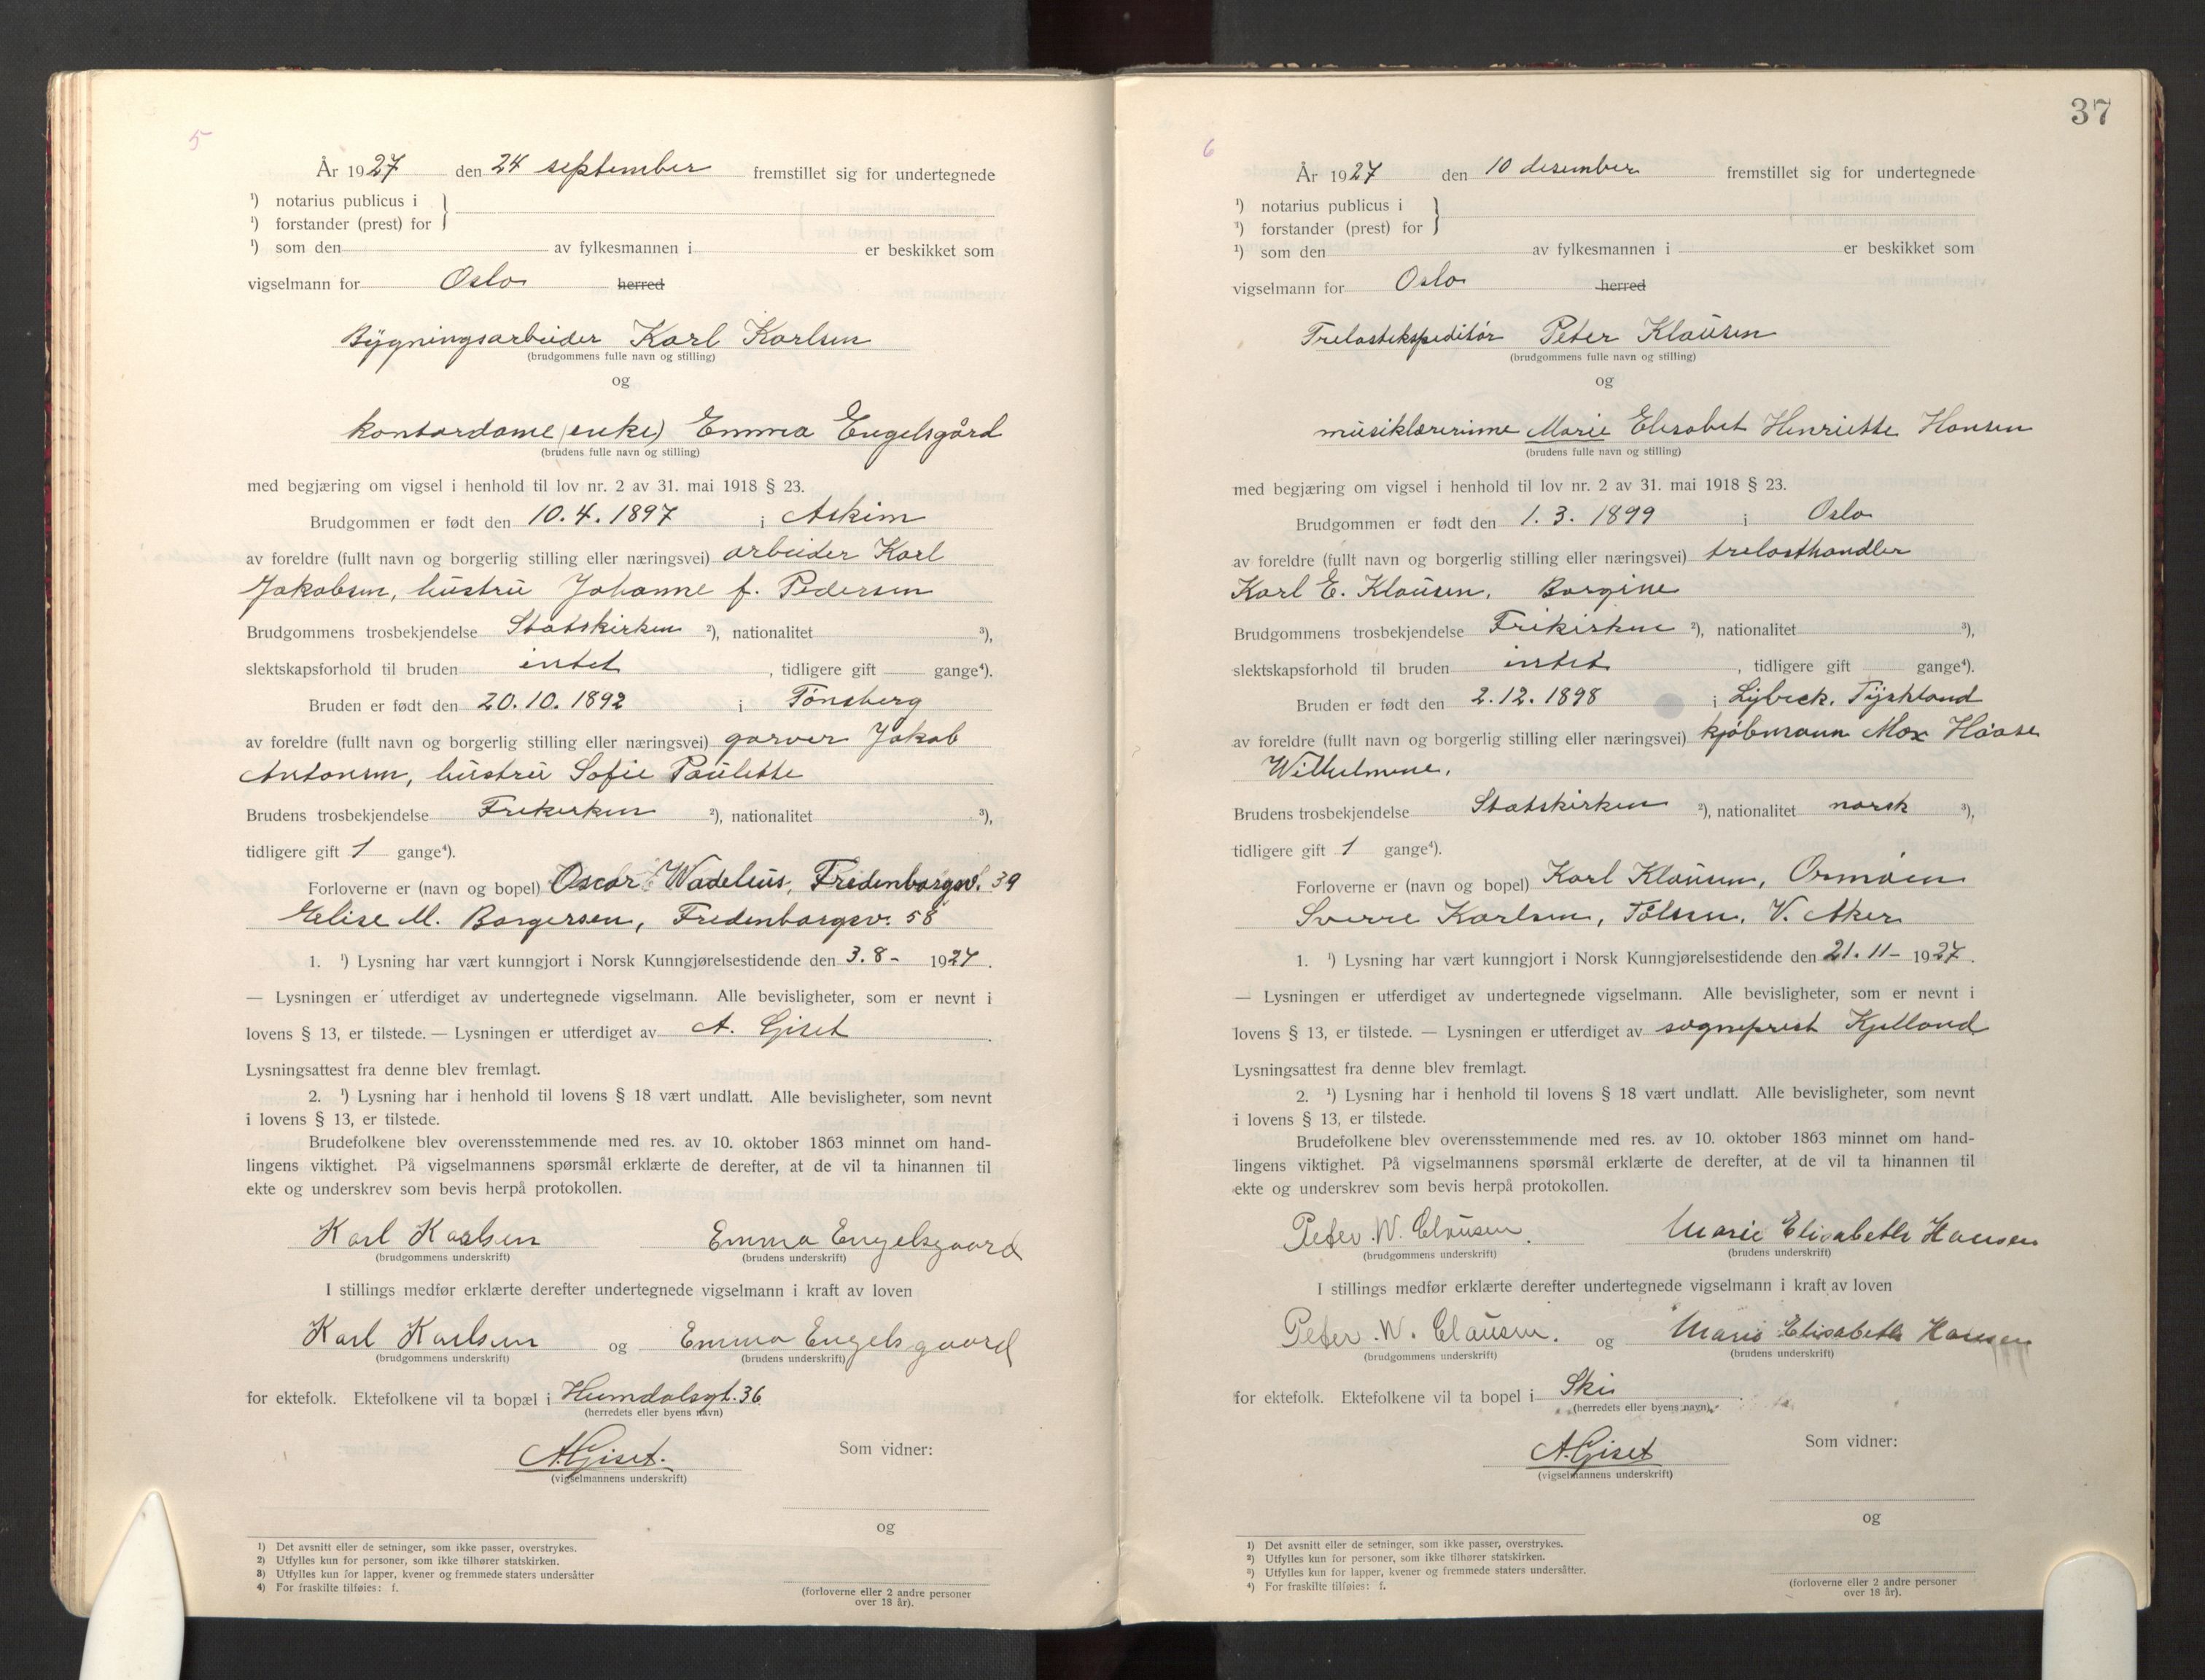 5
År 1927 den 24 september fremstillet sig for undertegnede
¹) notarius publicus i }
¹) forstander (prest) for
¹) som den av fylkesmannen i er beskikket som
vigselmann for Oslo herred
Bygningsarbeider Karl Karlsen
(brudgommens fulle navn og stilling)
og
kontordame (enke) Emma Engelsgård
(brudens fulle navn og stilling)
med begjæring om vigsel i henhold til lov nr. 2 av 31. mai 1918 § 23.
Brudgommen er født den 10.4.1897 i Askim
av foreldre (fullt navn og borgerlig stilling eller næringsvei) arbeider Karl
Jakobsen, hustru Johanne f. Pedersen
Brudgommens trosbekjendelse Statskirken ²), nationalitet ³),
slektskapsforhold til bruden intet, tidligere gift gange⁴).
Bruden er født den 20.10.1892 i Tønsberg
av foreldre (fullt navn og borgerlig stilling eller næringsvei) garver Jakob
Antonsen, hustru Sofie Paulette
Brudens trosbekjendelse Frikirken ²), nationalitet ³),
tidligere gift 1 gange⁴).
Forloverne er (navn og bopel) Oscar Wadelius, Fredenborgsv. 39
Elise M. Borgersen, Fredenborgsv. 58
1. ¹) Lysning har vært kunngjort i Norsk Kunngjørelsestidende den 3.8- 1927.
— Lysningen er utferdiget av undertegnede vigselmann. Alle bevisligheter, som er nevnt i
lovens § 13, er tilstede. — Lysningen er utferdiget av A. Giset.
Lysningsattest fra denne blev fremlagt.
2. ¹) Lysning har i henhold til lovens § 18 vært undlatt. Alle bevisligheter, som nevnt
i lovens § 13, er tilstede.
Brudefolkene blev overensstemmende med res. av 10. oktober 1863 minnet om hand-
lingens viktighet. På vigselmannens spørsmål erklærte de derefter, at de vil ta hinannen til
ekte og underskrev som bevis herpå protokollen.
Karl Karlsen Emma Engelsgaard
(brudgommens underskrift) (brudens underskrift)
I stillings medfør erklærte derefter undertegnede vigselmann i kraft av loven
Karl Karlsen og Emma Engelsgaard
(brudgommens underskrift) (brudens underskrift)
for ektefolk. Ektefolkene vil ta bopæl i Humdalsgt. 36
(herredets eller byens navn)
A. Giset. Som vidner:
(vigselmannens underskrift)
og
1) Det avsnitt eller de setninger, som ikke passer, overstrykes.
2) Utfylles kun for personer, som ikke tilhører statskirken.
3) Utfylles kun for lapper, kvener og fremmede staters undersåtter
4) For fraskilte tilføies: f.
(forloverne eller 2 andre personer
over 18 år).
37
6
År 1927 den 10 desember fremstillet sig for undertegnede
¹) notarius publicus i }
¹) forstander (prest) for
¹) som den av fylkesmannen i er beskikket som
vigselmann for Oslo herred
Trelastekspeditør Peter Klausen
(brudgommens fulle navn og stilling)
og
musiklærerinne Marie Elisabet Henriette Hansen
(brudens fulle navn og stilling)
med begjæring om vigsel i henhold til lov nr. 2 av 31. mai 1918 § 23.
Brudgommen er født den 1.3.1899 i Oslo
av foreldre (fullt navn og borgerlig stilling eller næringsvei) trelasthandler
Karl E. Klausen, Borgine
Brudgommens trosbekjendelse Frikirken ²), nationalitet ³),
slektskapsforhold til bruden intet, tidligere gift gange⁴).
Bruden er født den 2.12.1898 i Lybeck, Tyskland
av foreldre (fullt navn og borgerlig stilling eller næringsvei) kjøbmann Max Haase
Wilhelmine.
Brudens trosbekjendelse Statskirken ²), nationalitet norsk ³),
tidligere gift 1 gange⁴).
Forloverne er (navn og bopel) Karl Klausen, Ormøen
Sverre Karlsen, V. Aker
1. ¹) Lysning har vært kunngjort i Norsk Kunngjørelsestidende den 21.11- 1927.
— Lysningen er utferdiget av undertegnede vigselmann. Alle bevisligheter, som er nevnt i
lovens § 13, er tilstede. — Lysningen er utferdiget av sogneprest Kjelland
Lysningsattest fra denne blev fremlagt.
2. ¹) Lysning har i henhold til lovens § 18 vært undlatt. Alle bevisligheter, som nevnt
i lovens § 13, er tilstede.
Brudefolkene blev overensstemmende med res. av 10. oktober 1863 minnet om hand-
lingens viktighet. På vigselmannens spørsmål erklærte de derefter, at de vil ta hinannen til
ekte og underskrev som bevis herpå protokollen.
Peter W. Clausen. Marie Elisabeth Hansen
(brudgommens underskrift) (brudens underskrift)
I stillings medfør erklærte derefter undertegnede vigselmann i kraft av loven
Peter W. Clausen. og Marie Elisabeth Hansen
(brudgommens underskrift) (brudens underskrift)
for ektefolk. Ektefolkene vil ta bopel i Ski.
(herredets eller byens navn)
A. Giset Som vidner:
(vigselmannens underskrift)
og
1) Det avsnitt eller de setninger, som ikke passer, overstrykes.
²) Utfylles kun for personer, som ikke tilhører statskirken.
³) Utfylles kun for lapper, kvener og fremmede staters undersåtter.
⁴) For fraskilte tilføies: f.
(forloverne eller 2 andre personer
over 18 år).